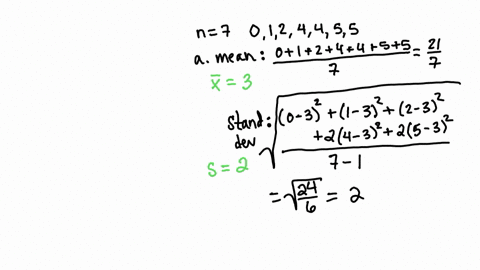 n=7 0,1,2,4,4,5,5
a. mean: (0+1+2+4+4+5+5)/7 = 21/7
x̄ = 3
stand. dev: √(((0-3)² + (1-3)² + (2-3)²
+2(4-3)² + 2(5-3)²)/(7-1))
s = 2
= √(24/6) = 2